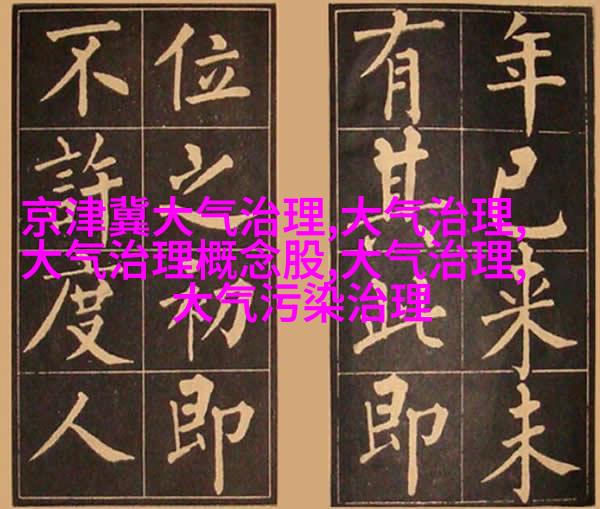 年已来未
有其此即
位之初即
不許度人
京津冀大气治理,大气治理,
大气治理概念股,大气治理,
大气污染治理